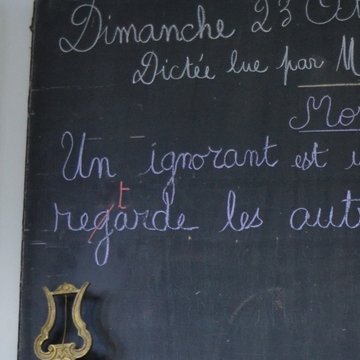 Dimanche 23
Dictée lue par M
Un ignorant est
t
regarde les